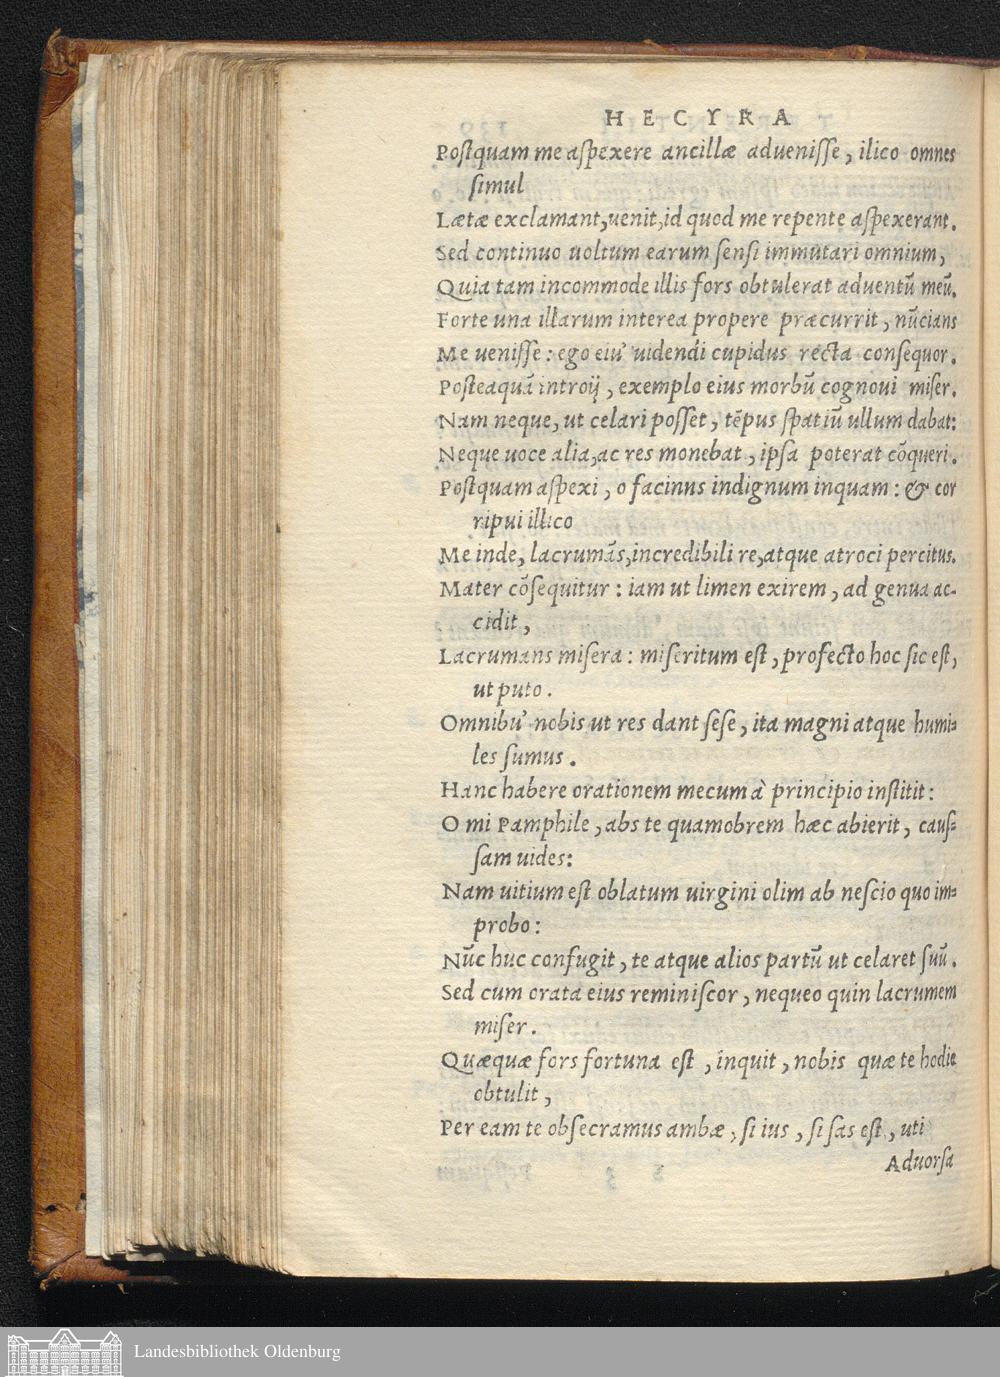 HECYRA
Postquam me aspexere ancillæ aduenisse, ilico omnes
simul
Lætæ exclamant, uenit, id quod me repente aspexerant.
Sed continuo uoltum earum sensi immutari omnium,
Quia tam incommode illis fors obtulerat aduentū meū.
Forte una illarum interea propere præcurrit, nūcians
Me uenisse: ego eiu' uidendi cupidus recta consequor.
Posteaquā introij, exemplo eius morbū cognoui miser.
Nam neque, ut celari posset, tēpus spatiū ullum dabat:
Neque uoce alia, ac res monebat, ipsa poterat cōqueri.
Postquam aspexi, o facinus indignum inquam: & cor
ripui illico
Me inde, lacrumās, incredibili re, atque atroci percitus.
Mater cōsequitur: iam ut limen exirem, ad genua ac-
cidit,
Lacrumans misera: miseritum est, profecto hoc sic est,
ut puto.
Omnibu' nobis ut res dant sese, ita magni atque humi-
les sumus.
Hanc habere orationem mecum à principio institit:
O mi Pamphile, abs te quamobrem hæc abierit, caus-
sam uides:
Nam uitium est oblatum uirgini olim ab nescio quo im-
probo:
Nūc huc confugit, te atque alios partū ut celaret suū.
Sed cum orata eius reminiscor, nequeo quin lacrumem
miser.
Quæquæ fors fortuna est, inquit, nobis quæ te hodie
obtulit,
Per eam te obsecramus ambæ, si ius, si fas est, uti
Aduorsa
Landesbibliothek Oldenburg